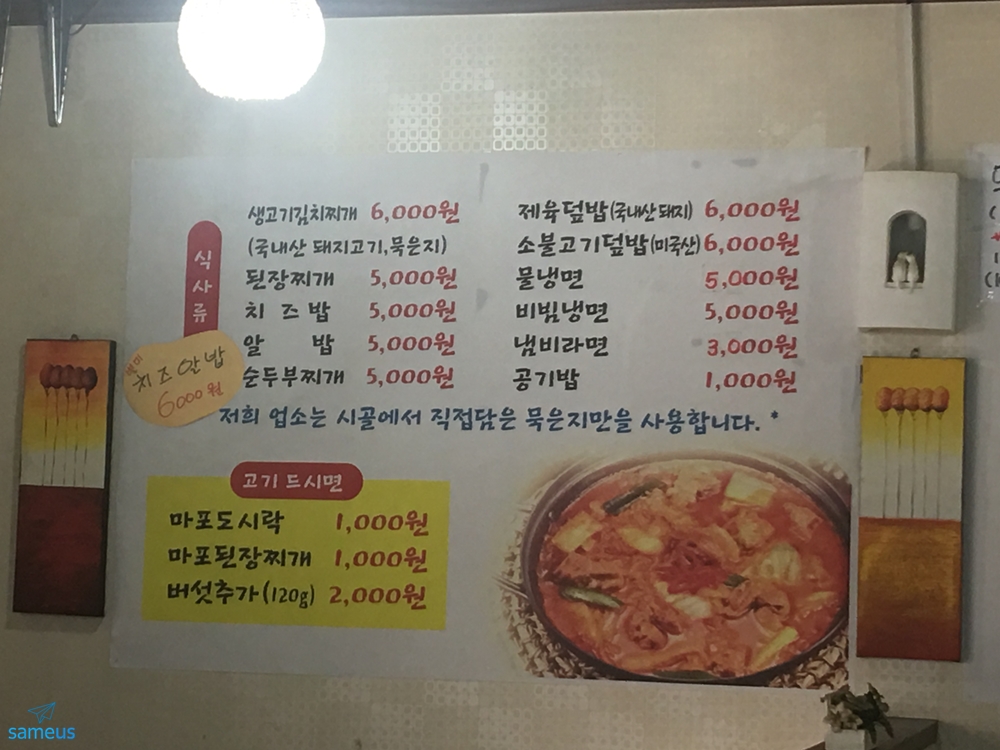 식사류
생고기김치찌개 6,000원
(국내산 돼지고기,묵은지)
된장찌개 5,000원
치즈밥 5,000원
알밥 5,000원
순두부찌개 5,000원
치즈알밥
6000원
제육덮밥(국내산돼지) 6,000원
소불고기덮밥(미국산) 6,000원
물냉면 5,000원
비빔냉면 5,000원
냄비라면 3,000원
공기밥 1,000원
저희 업소는 시골에서 직접담은 묵은지만을 사용합니다. *
고기 드시면
마포도시락 1,000원
마포된장찌개 1,000원
버섯추가(120g) 2,000원
sameus